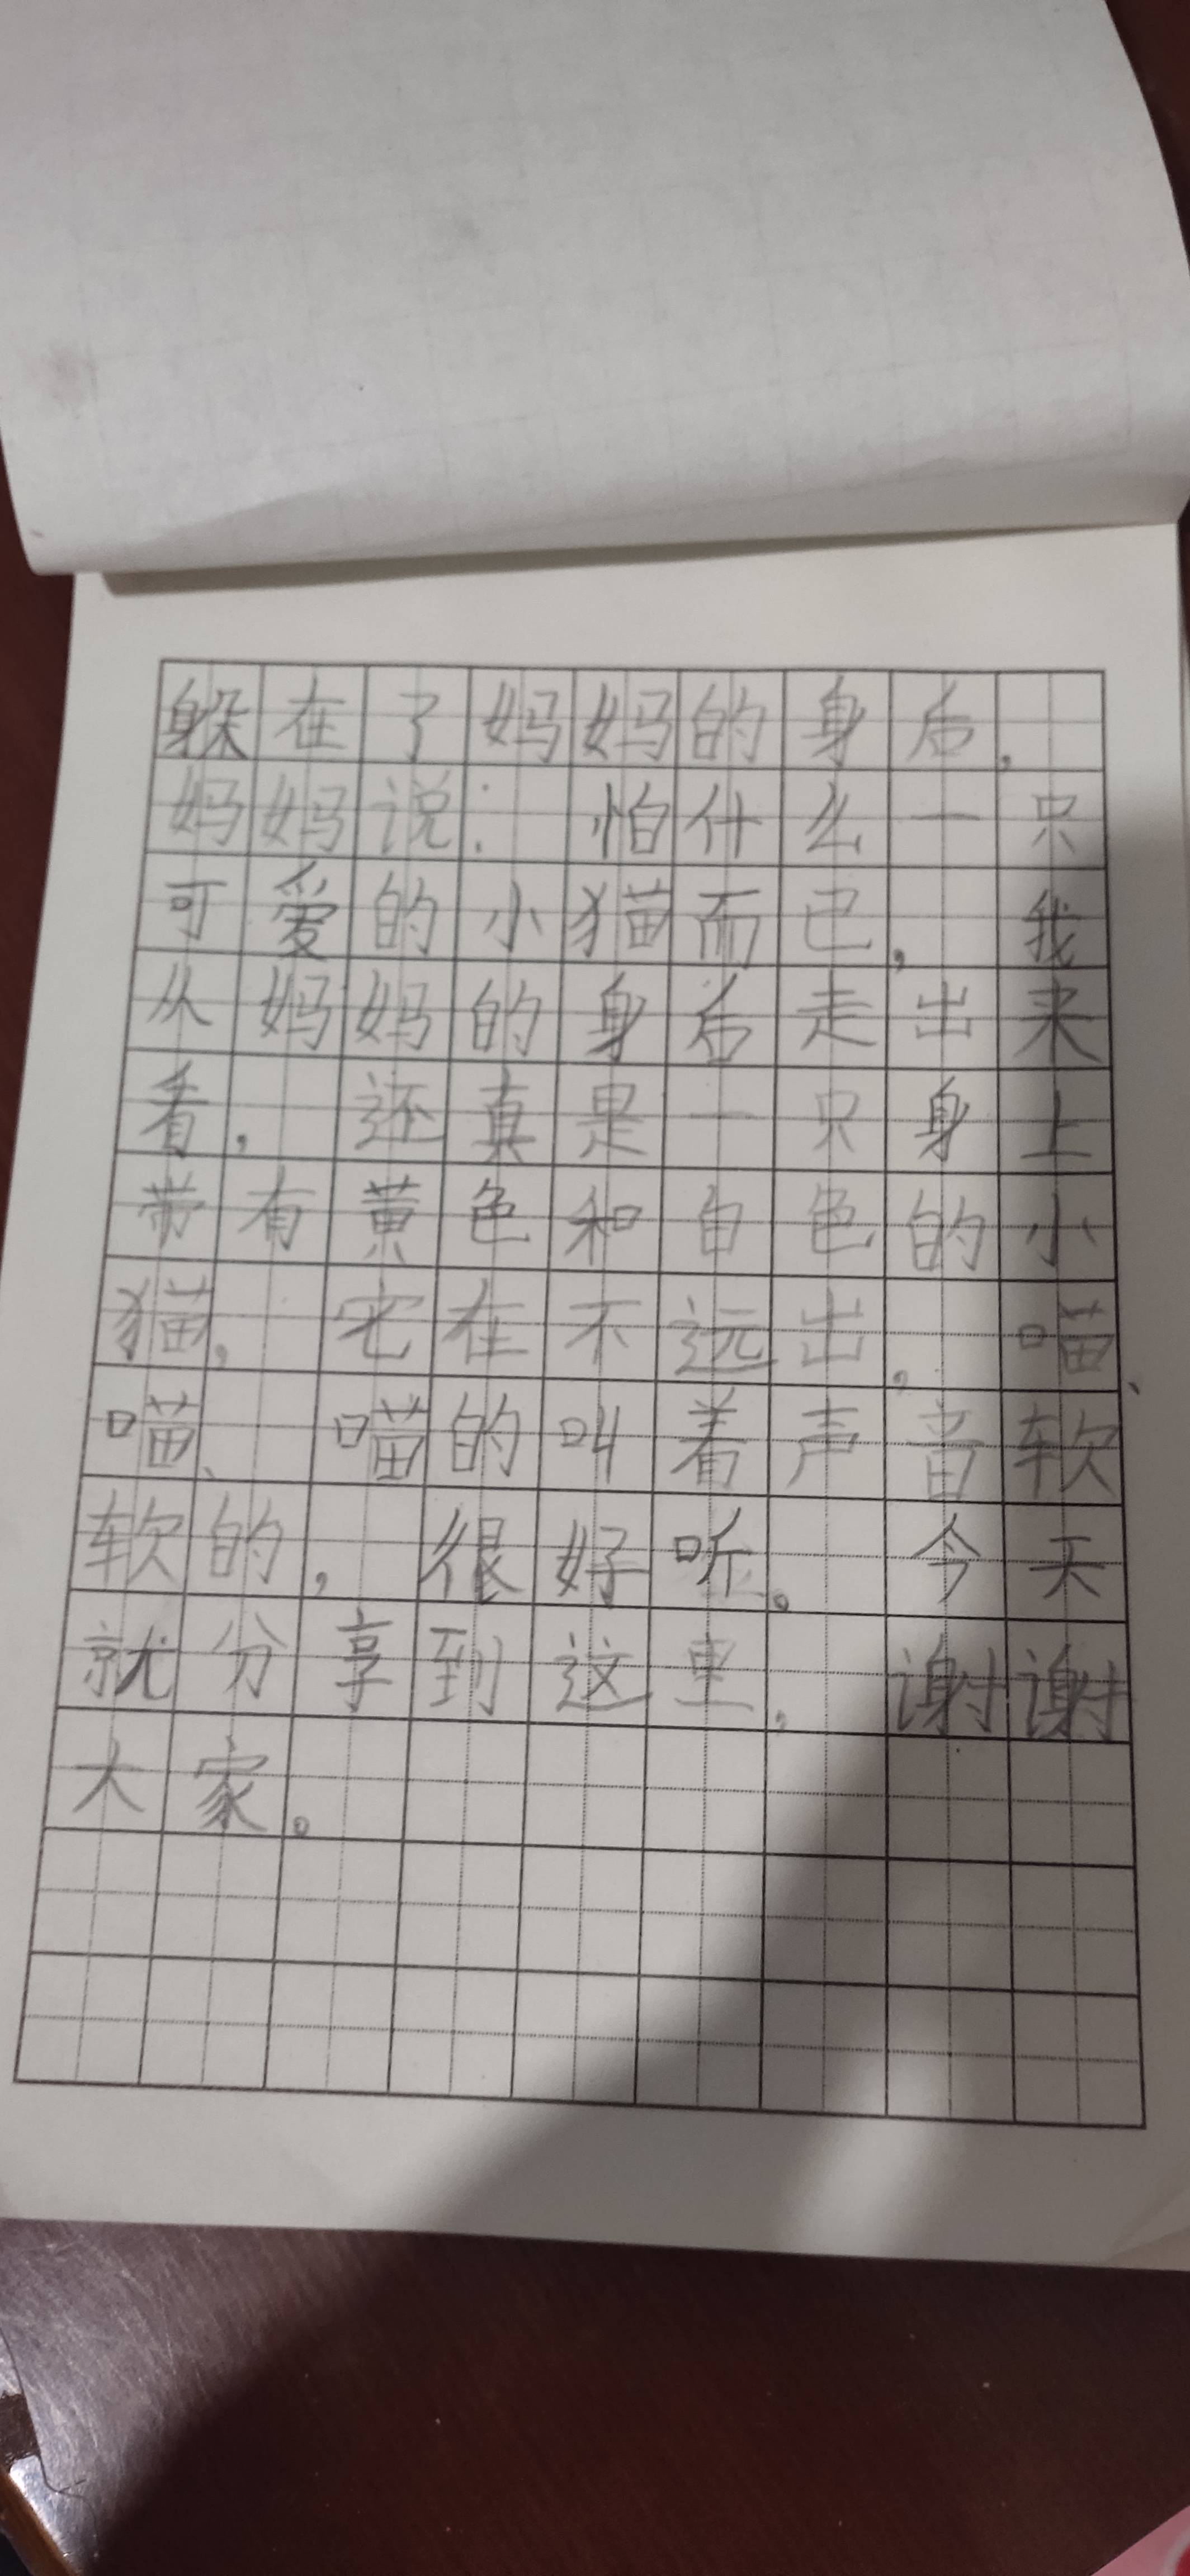 躲在了妈妈的身后,
妈妈说: 怕什么一只
可爱的小猫而已, 我
从妈妈的身后走出来
看, 还真是一只身上
带有黄色和白色的小
猫, 它在不远出, 喵、
喵、 喵的叫着声音软
软的, 很好听。 今天
就分享到这里, 谢谢
大家。